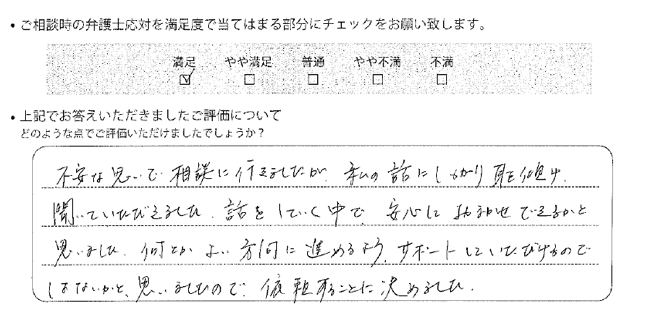 • ご相談時の弁護士応対を満足度で当てはまる部分にチェックをお願い致します。
満足 やや満足 普通 やや不満 不満
☑ □ □ □ □
• 上記でお答えいただきましたご評価について
どのような点でご評価いただけましたでしょうか？
不安な思いで相談に行きましたが、私の話にしっかり耳を傾け、
聞いていただきました。話をしていく中で、安心しておまかせできるかと
思いました。何とかよい方向に進めるよう、サポートしていただけるので
はないかと、思いましたので、依頼することに決めました。